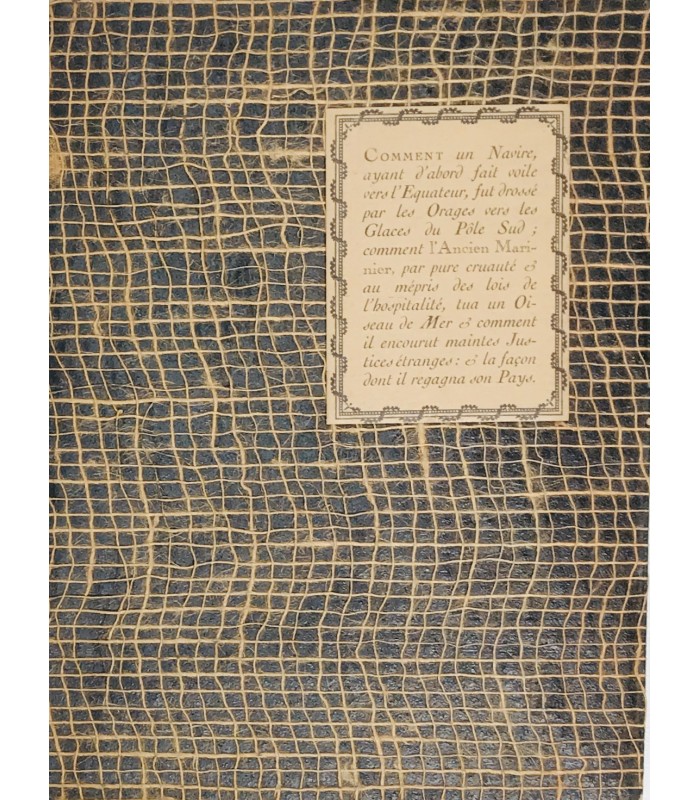 COMMENT un Navire,
ayant d'abord fait voile
vers l'Equateur, fut drossé
par les Orages vers les
Glaces du Pôle Sud ;
comment l'Ancien Mari-
nier, par pure cruauté &
au mépris des lois de
l'hospitalité, tua un Oi-
seau de Mer & comment
il encourut maintes Jus-
tices étranges : & la façon
dont il regagna son Pays.